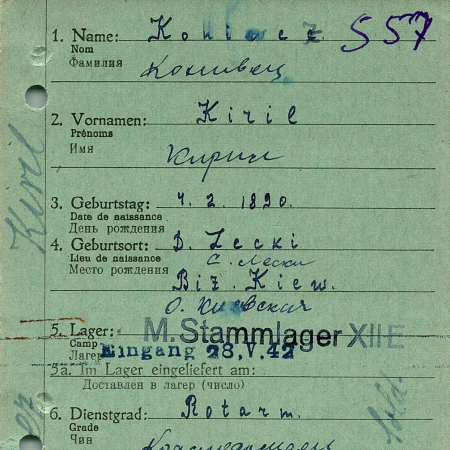 1. Name: Koniwez 557
Nom
Фамилия Конивец
2. Vornamen: Kiril
Prénoms
Имя Кирил
Kiril
3. Geburtstag: 4. 2. 1890.
Date de naissance
День рождения
4. Geburtsort: D. Lecki
Lieu de naissance с. Лески
Место рождения Biz. Kiew.
О. Киевская
5. Lager: M. Stammlager XII E
Camp
Лагерь Eingang 28. V. 42
5a. Im Lager eingeliefert am:
Доставлен в лагерь (число)
6. Dienstgrad: Rotarm.
Grade
Чин Красноармеец
Sold